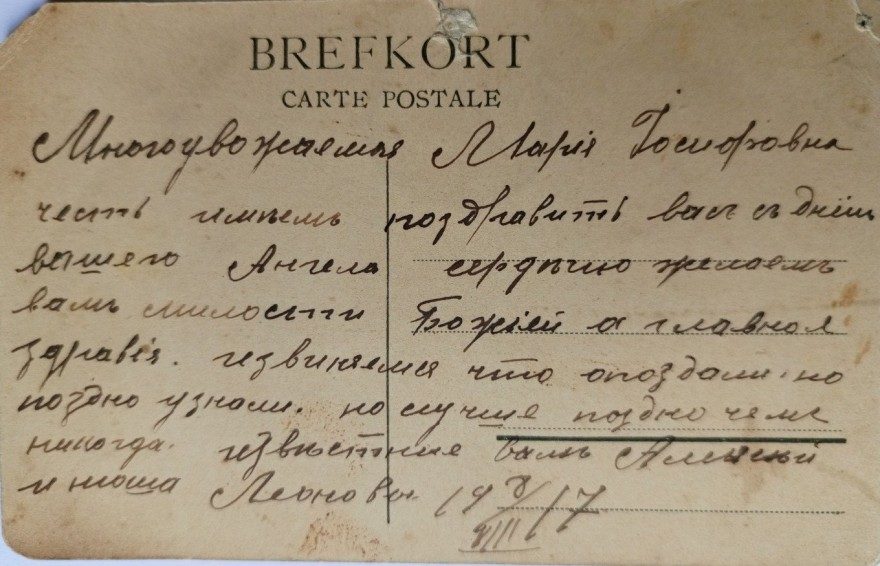 BREFKORT
CARTE POSTALE
Многоуважаемая Марія Іосифовна
честь имѣемъ поздравить васъ съ днём
вашего Ангела сердечно желаемъ
вамъ милости Божіей а главное
здравія. извиняемся что опоздали. но
поздно узнали. но лучше поздно чемъ
никогда. извѣстные вамъ Алексѣй
и Леоновы 19 VIII 17